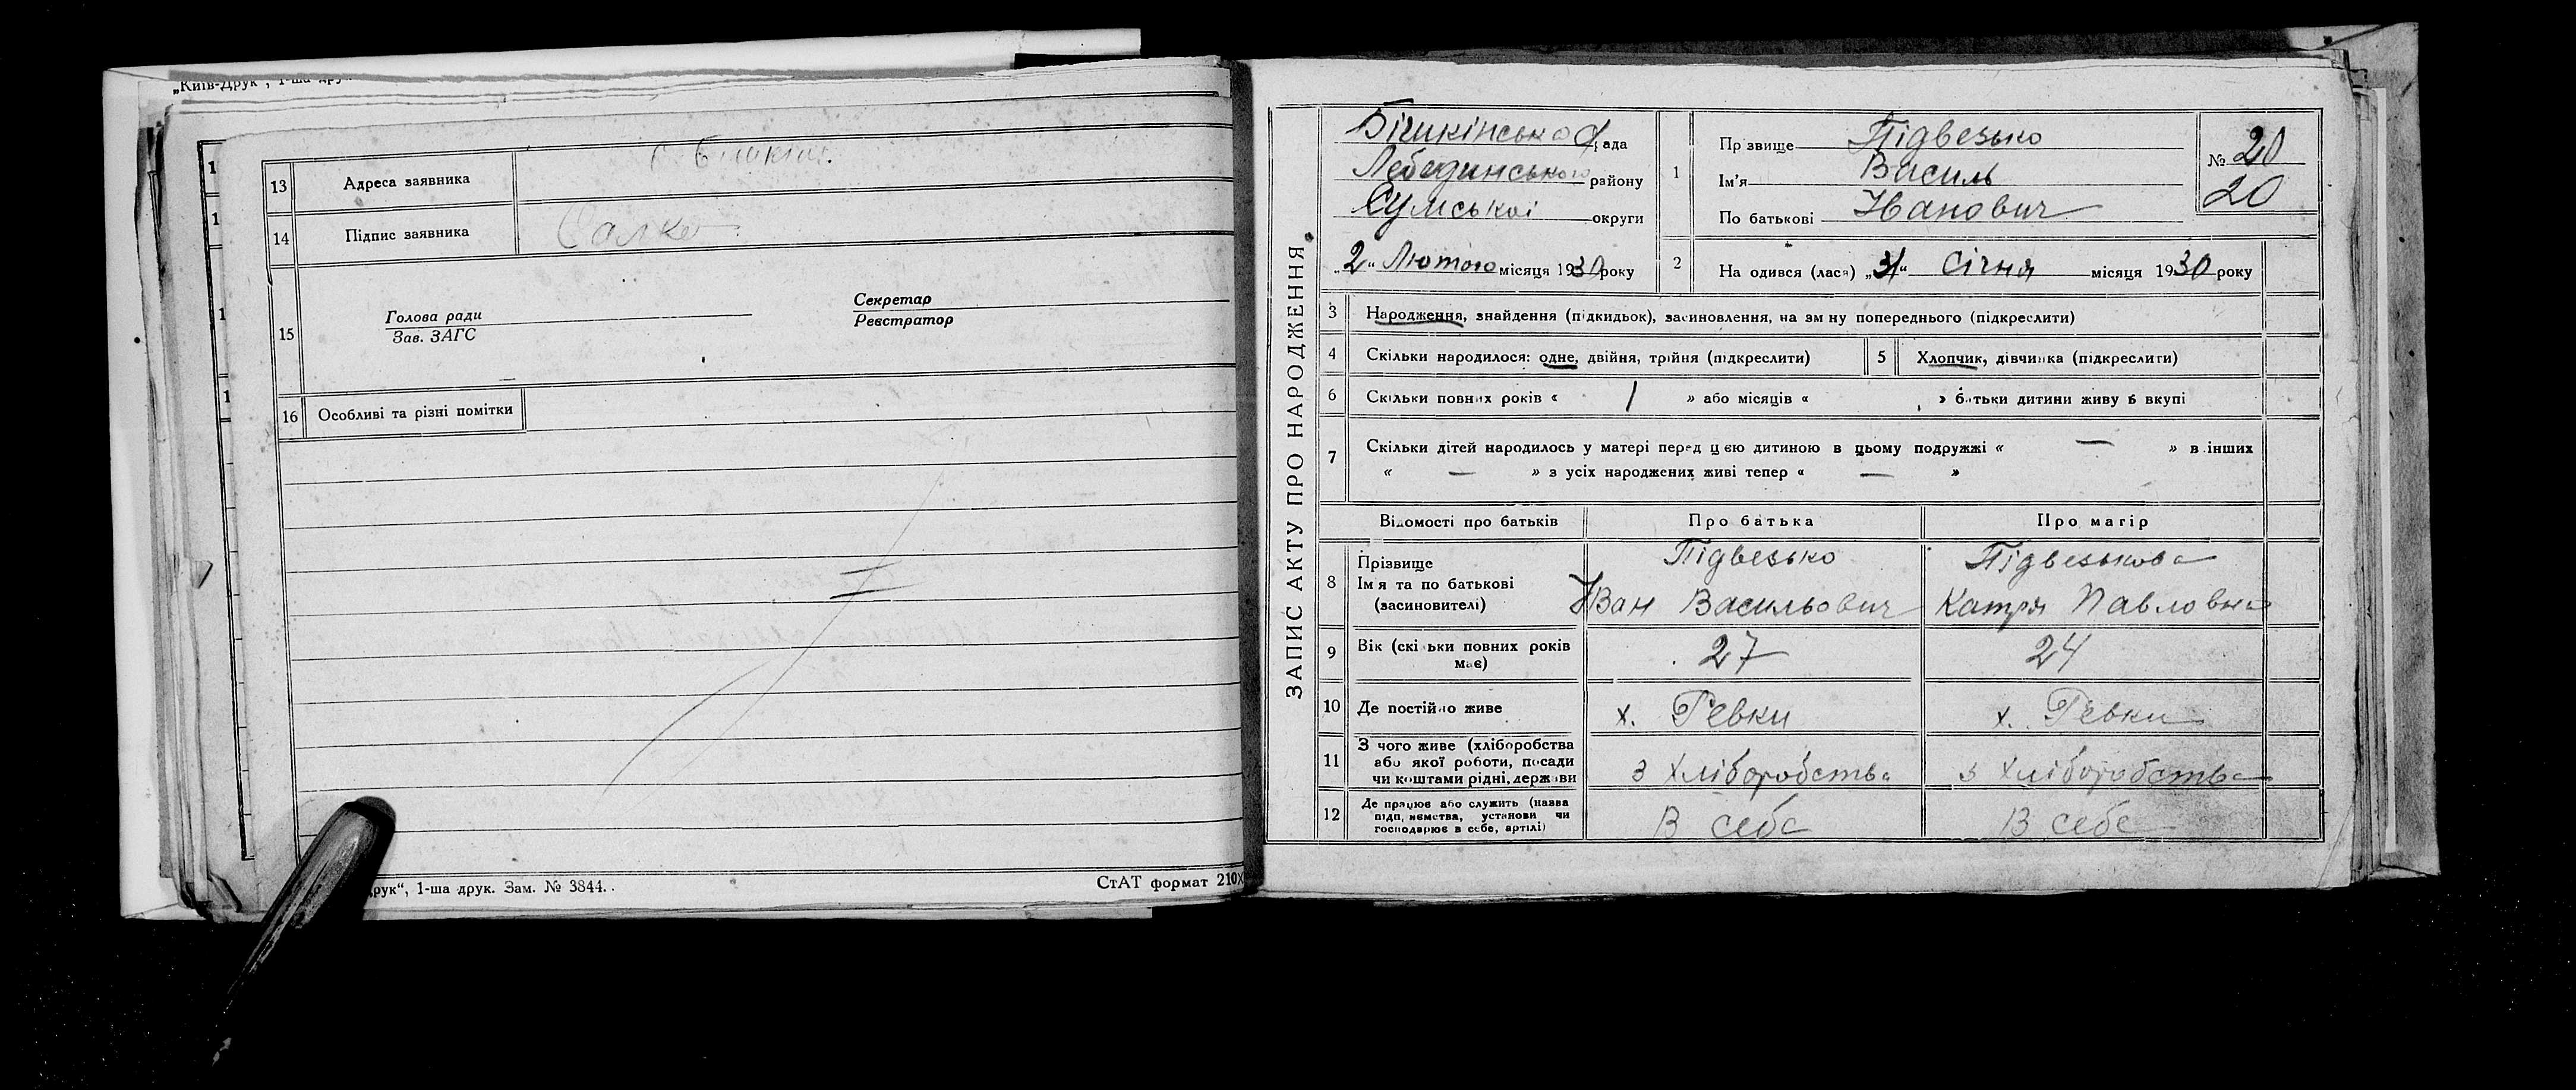 „Київ-Друк", 1-ша дру
13 Адреса заявника с. Бишкінь.
14 Підпис заявника
15 Голова ради
Зав. ЗАГС
Секретар
Реєстратор
16 Особливі та різні помітки
друк", 1-ша друк. Зам. № 3844.
СтАТ формат 210X
ЗАПИС АКТУ ПРО НАРОДЖЕННЯ
Бішкінська рада
Лебединського району
Сумської округи
„2" Лютого місяця 1930 року
1 Прізвище Підвезько
Ім'я Василь
По батькові Іванович
№ 20
20
2 На одився (лася) „31" Січня місяця 1930 року
3 Народження, знайдення (підкидьок), засиновлення, на зм ну попереднього (підкреслити)
4 Скільки народилося: одне, двійня, трійня (підкреслити) 5 Хлопчик, дівчинка (підкреслити)
6 Скільки повних років « 1 » або місяців « » батьки дитини живу ь вкупі
7 Скільки дітей народилось у матері перед цією дитиною в цьому подружжі « — » в інших
« — » з усіх народжених живі тепер « — »
Відомості про батьків Про батька Про матір
8 Прізвище
Ім'я та по батькові
(засиновителі)
Підвезько
Іван Васильович
Підвезькова
Катря Павловна
9 Вік (скільки повних років має) 27 24
10 Де постійно живе х. Ревки х. Ревки
11 З чого живе (хліборобства
або якої роботи, посади
чи коштами рідні, держави
з хліборобства з хліборобства
12 Де працює або служить (назва
підп, иємства, установи чи
господарює в себе, артілі)
В себе В себе